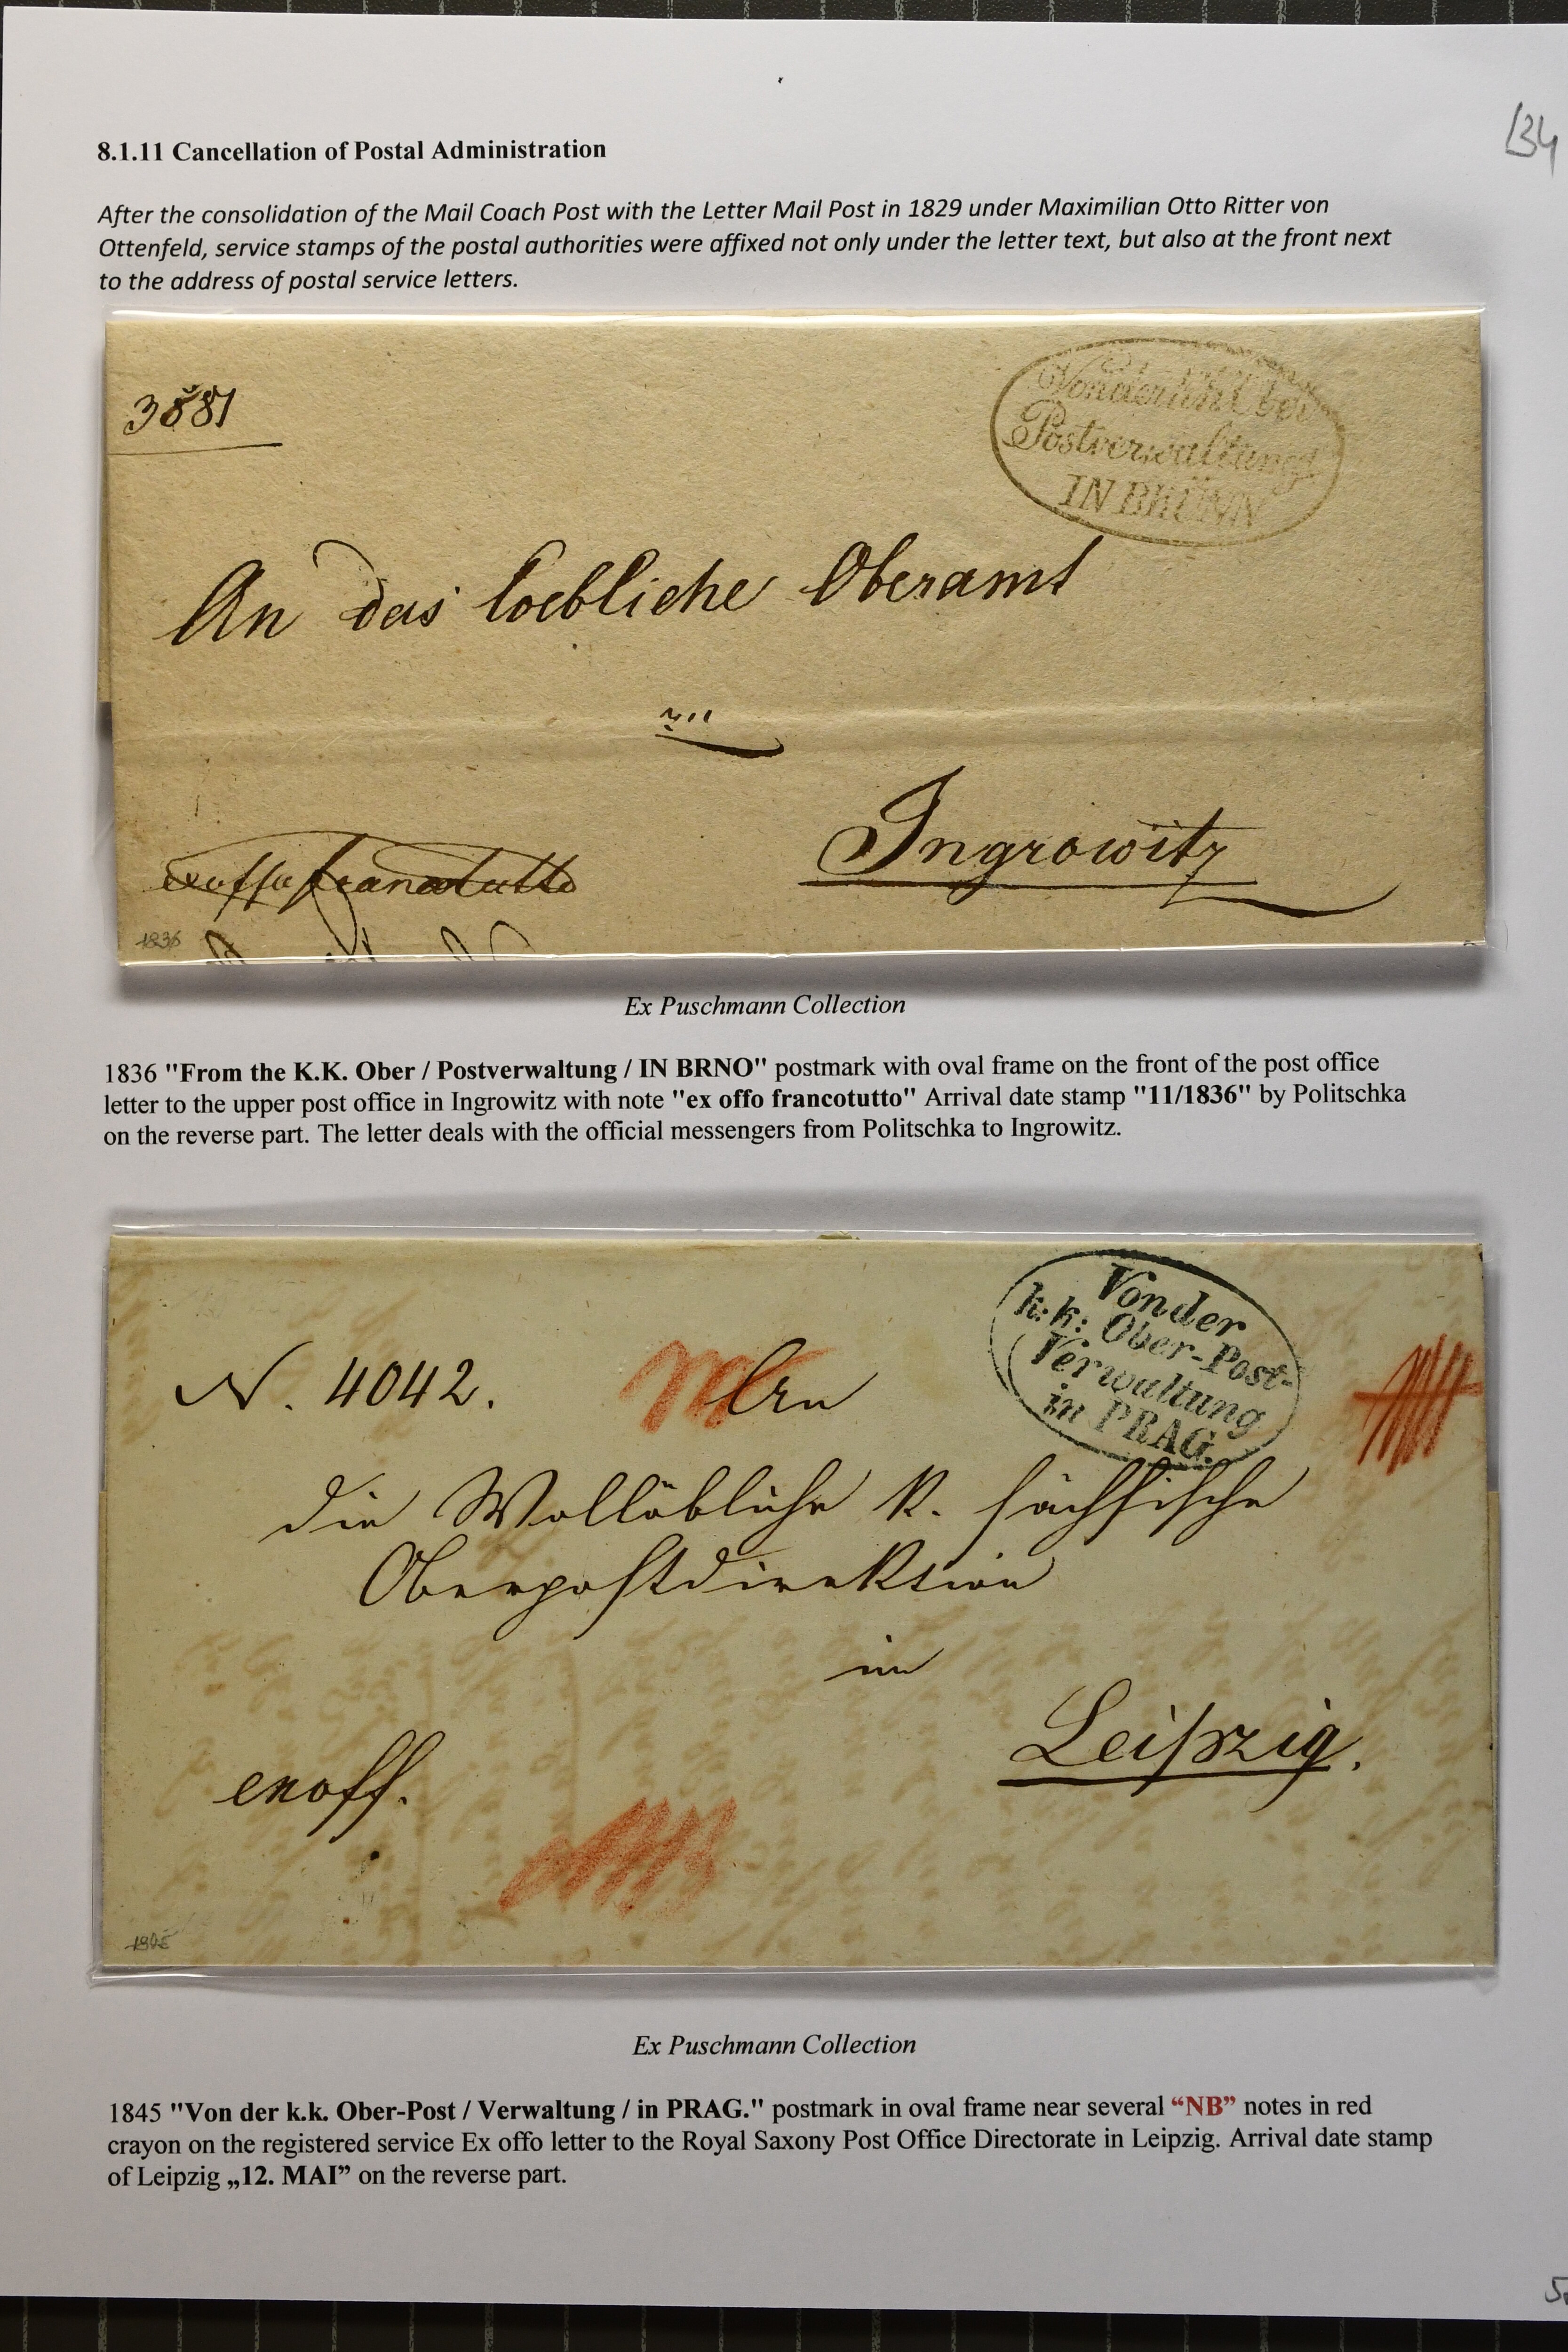 134
8.1.11 Cancellation of Postal Administration
After the consolidation of the Mail Coach Post with the Letter Mail Post in 1829 under Maximilian Otto Ritter von
Ottenfeld, service stamps of the postal authorities were affixed not only under the letter text, but also at the front next
to the address of postal service letters.
3881
Von der k.k. Ober
Postverwaltung
IN BRÜNN
An das loebliche Oberamt
zu
Ingrowitz
exoffo francotutto
1836
Ex Puschmann Collection
1836 "From the K.K. Ober / Postverwaltung / IN BRNO" postmark with oval frame on the front of the post office
letter to the upper post office in Ingrowitz with note "ex offo francotutto" Arrival date stamp "11/1836" by Politschka
on the reverse part. The letter deals with the official messengers from Politschka to Ingrowitz.
Von der
k: k: Ober-Post-
Verwaltung
in PRAG.
N. 4042. An
die Wollöbliche K. sächsische
Oberpostdirektion
in
Leipzig.
exoff.
1845
Ex Puschmann Collection
1845 "Von der k.k. Ober-Post / Verwaltung / in PRAG." postmark in oval frame near several “NB” notes in red
crayon on the registered service Ex offo letter to the Royal Saxony Post Office Directorate in Leipzig. Arrival date stamp
of Leipzig „12. MAI” on the reverse part.